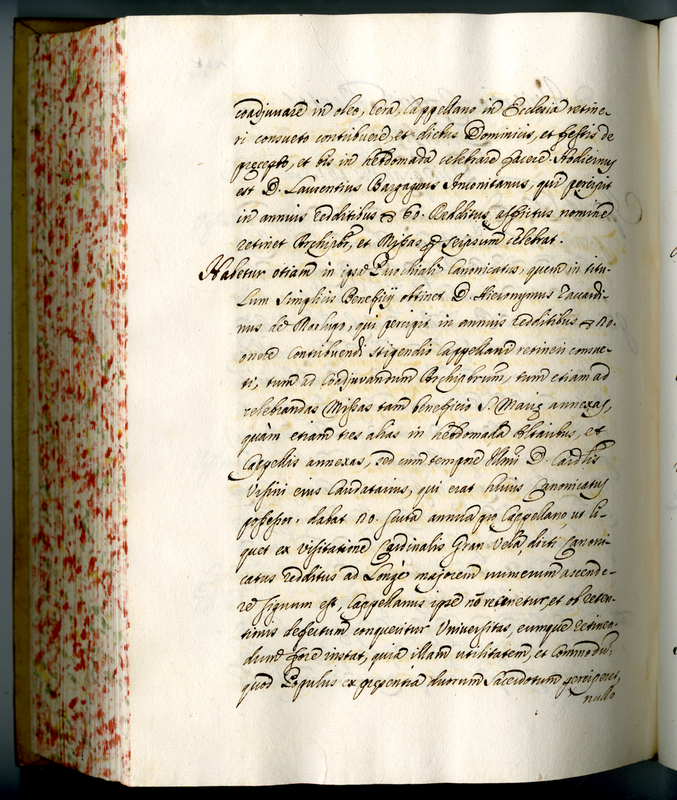 coadjuvare in oleo, Cera, Cappellano in Ecclesia retine-
ri consueto contribuere, et diebus Dominicis, et festis de
precepto, et bis in hebdomada celebrare facere. Hodiernus
est D. Laurentius Bargagnus qui percipit
in annuis redditibus 60. Redditus affictus nomine
retinet Archipbr, et Missas p seipsum celebrat.
Habetur etiam in ipsa Parochiali Canonicatus, quem in titu-
lum simplicis Beneficij obtinet D. Hieronymus Zaccardi-
nus de qui percipit in annuis redditibus 70.
onere Contribuendi stipendio Cappellani retineri consue-
ti, tum ad Coadjuvandum Archipbrum, tum etiam ad
celebrandas Missas tam beneficio S. Marię annexas,
quàm etiam tres alias in hebdomada Altaribus, et
Cappellis annexas, sed cum tempore D. Cardlis
Ursini eius Caudatarius, qui erat huius Canonicatus
possessor, dabat 70. scuta annua pro Cappellano, ut li-
quet ex visitatione Cardinalis Gran Vela, dicti Canoni-
catus redditus ad Longè majorem numerum ascende-
re signum est, Cappellanus ipse nō retinetur, et ob
defectum conqueritur Universitas, eumque retinen-
dum fore instat, quia illam utilitatem, et Commodū,
quod Populus ex presentia duorum Sacerdotum perciperet,
nullo